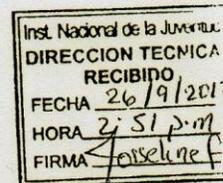 Inst. Nacional de la Juventud
DIRECCION TECNICA
RECIBIDO
FECHA 26/9/201
HORA 2:51 p.m
FIRMA Joseline